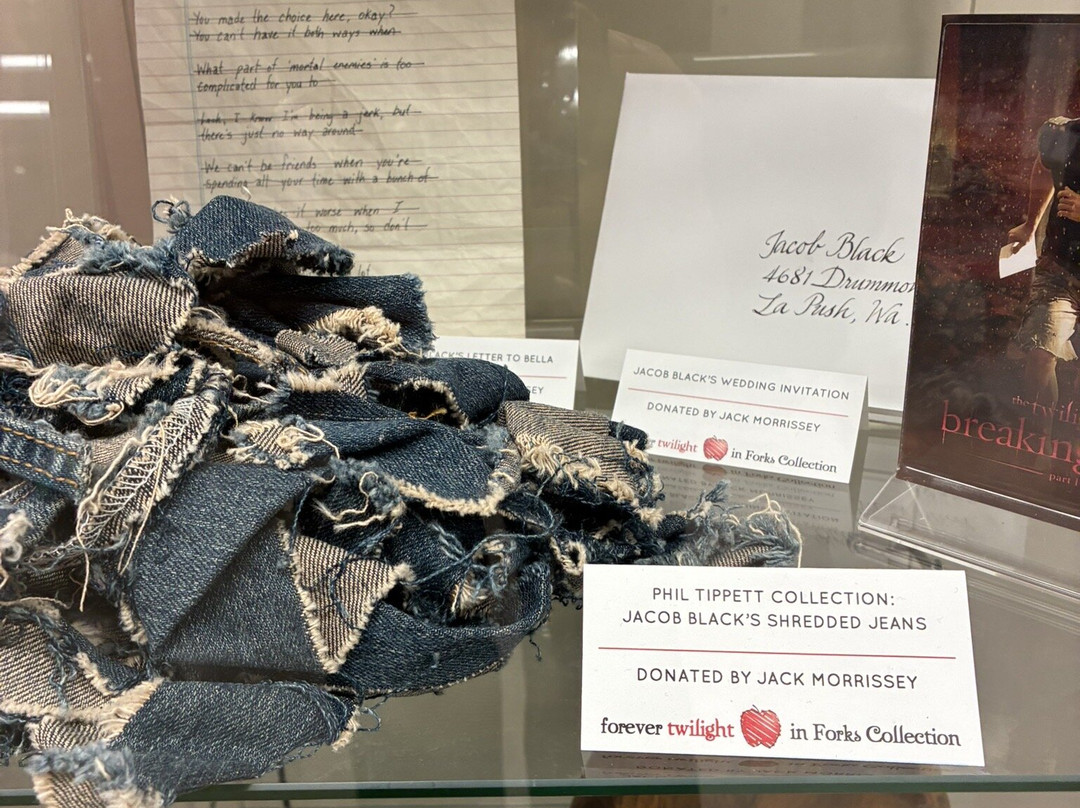 You made the choice here, okay?
You can't have it both ways when
What part of 'mortal enemies' is too
complicated for you to
Look, I know I'm being a jerk, but
there's just no way around
We can't be friends when you're
spending all your time with a bunch of
it worse when I
too much, so don't
Jacob Black
4681 Drummon
La Push, Wa.
BLACK'S LETTER TO BELLA
SEY
JACOB BLACK'S WEDDING INVITATION
DONATED BY JACK MORRISSEY
twilight in Forks Collection
the twili
breaking
part 1
PHIL TIPPETT COLLECTION:
JACOB BLACK'S SHREDDED JEANS
DONATED BY JACK MORRISSEY
forever twilight in Forks Collection